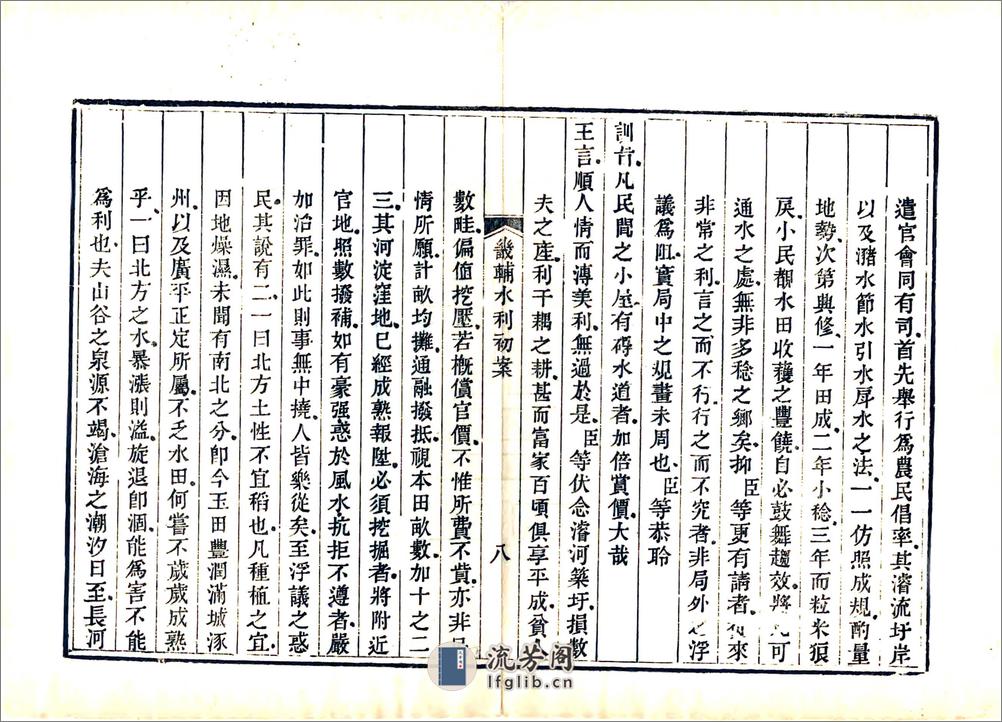 遣官會同有司首先舉行爲農民倡率其濬流圩岸
以及瀦水節水引水戽水之法一一仿照成規酌量
地勢次第興修一年田成二年小稔三年而粒米狼
戾小民覩水田收穫之豐饒自必鼓舞趨效將 可
通水之處無非多稔之鄉矣抑臣等更有請者 來
非常之利言之而不行行之而不究者非局外之浮
議爲阻實局中之規畫未周也臣等恭聆
訓旨凡民間之小屋有碍水道者加倍賞價大哉
王言順人情而溥美利無過於是臣等伏念濬河築圩損數
夫之產利千耦之耕甚而富家百頃俱享平成貧
畿輔水利初案 八
數畦偏値挖壓若概償官價不惟所費不貲亦非
情所願計畝均攤通融撥抵視本田畝數加十之二
三其河淀窪地已經成熟報陞必須挖掘者將附近
官地照數撥補如有豪强惑於風水抗拒不遵者嚴
加治罪如此則事無中撓人皆樂從矣至浮議之惑
民其說有二一曰北方土性不宜稻也凡種植之宜
因地燥濕未聞有南北之分卽今玉田豐潤滿城涿
州以及廣平正定所屬不乏水田何嘗不歲歲成熟
乎一曰北方之水暴漲則溢旋退卽涸能爲害不能
爲利也夫山谷之泉源不竭滄海之潮汐日至長河
流芳阁
lfglib.cn